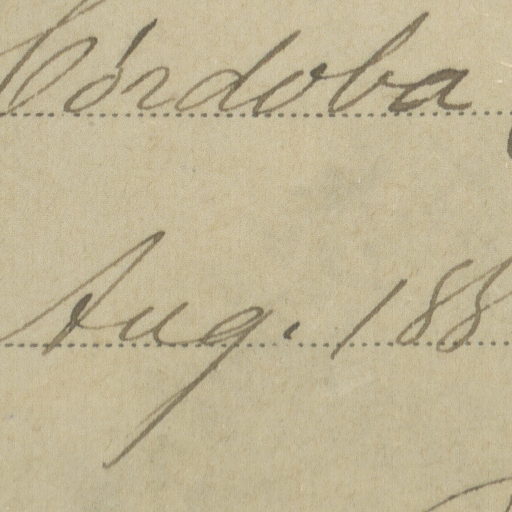 Córdoba
Aug. 188